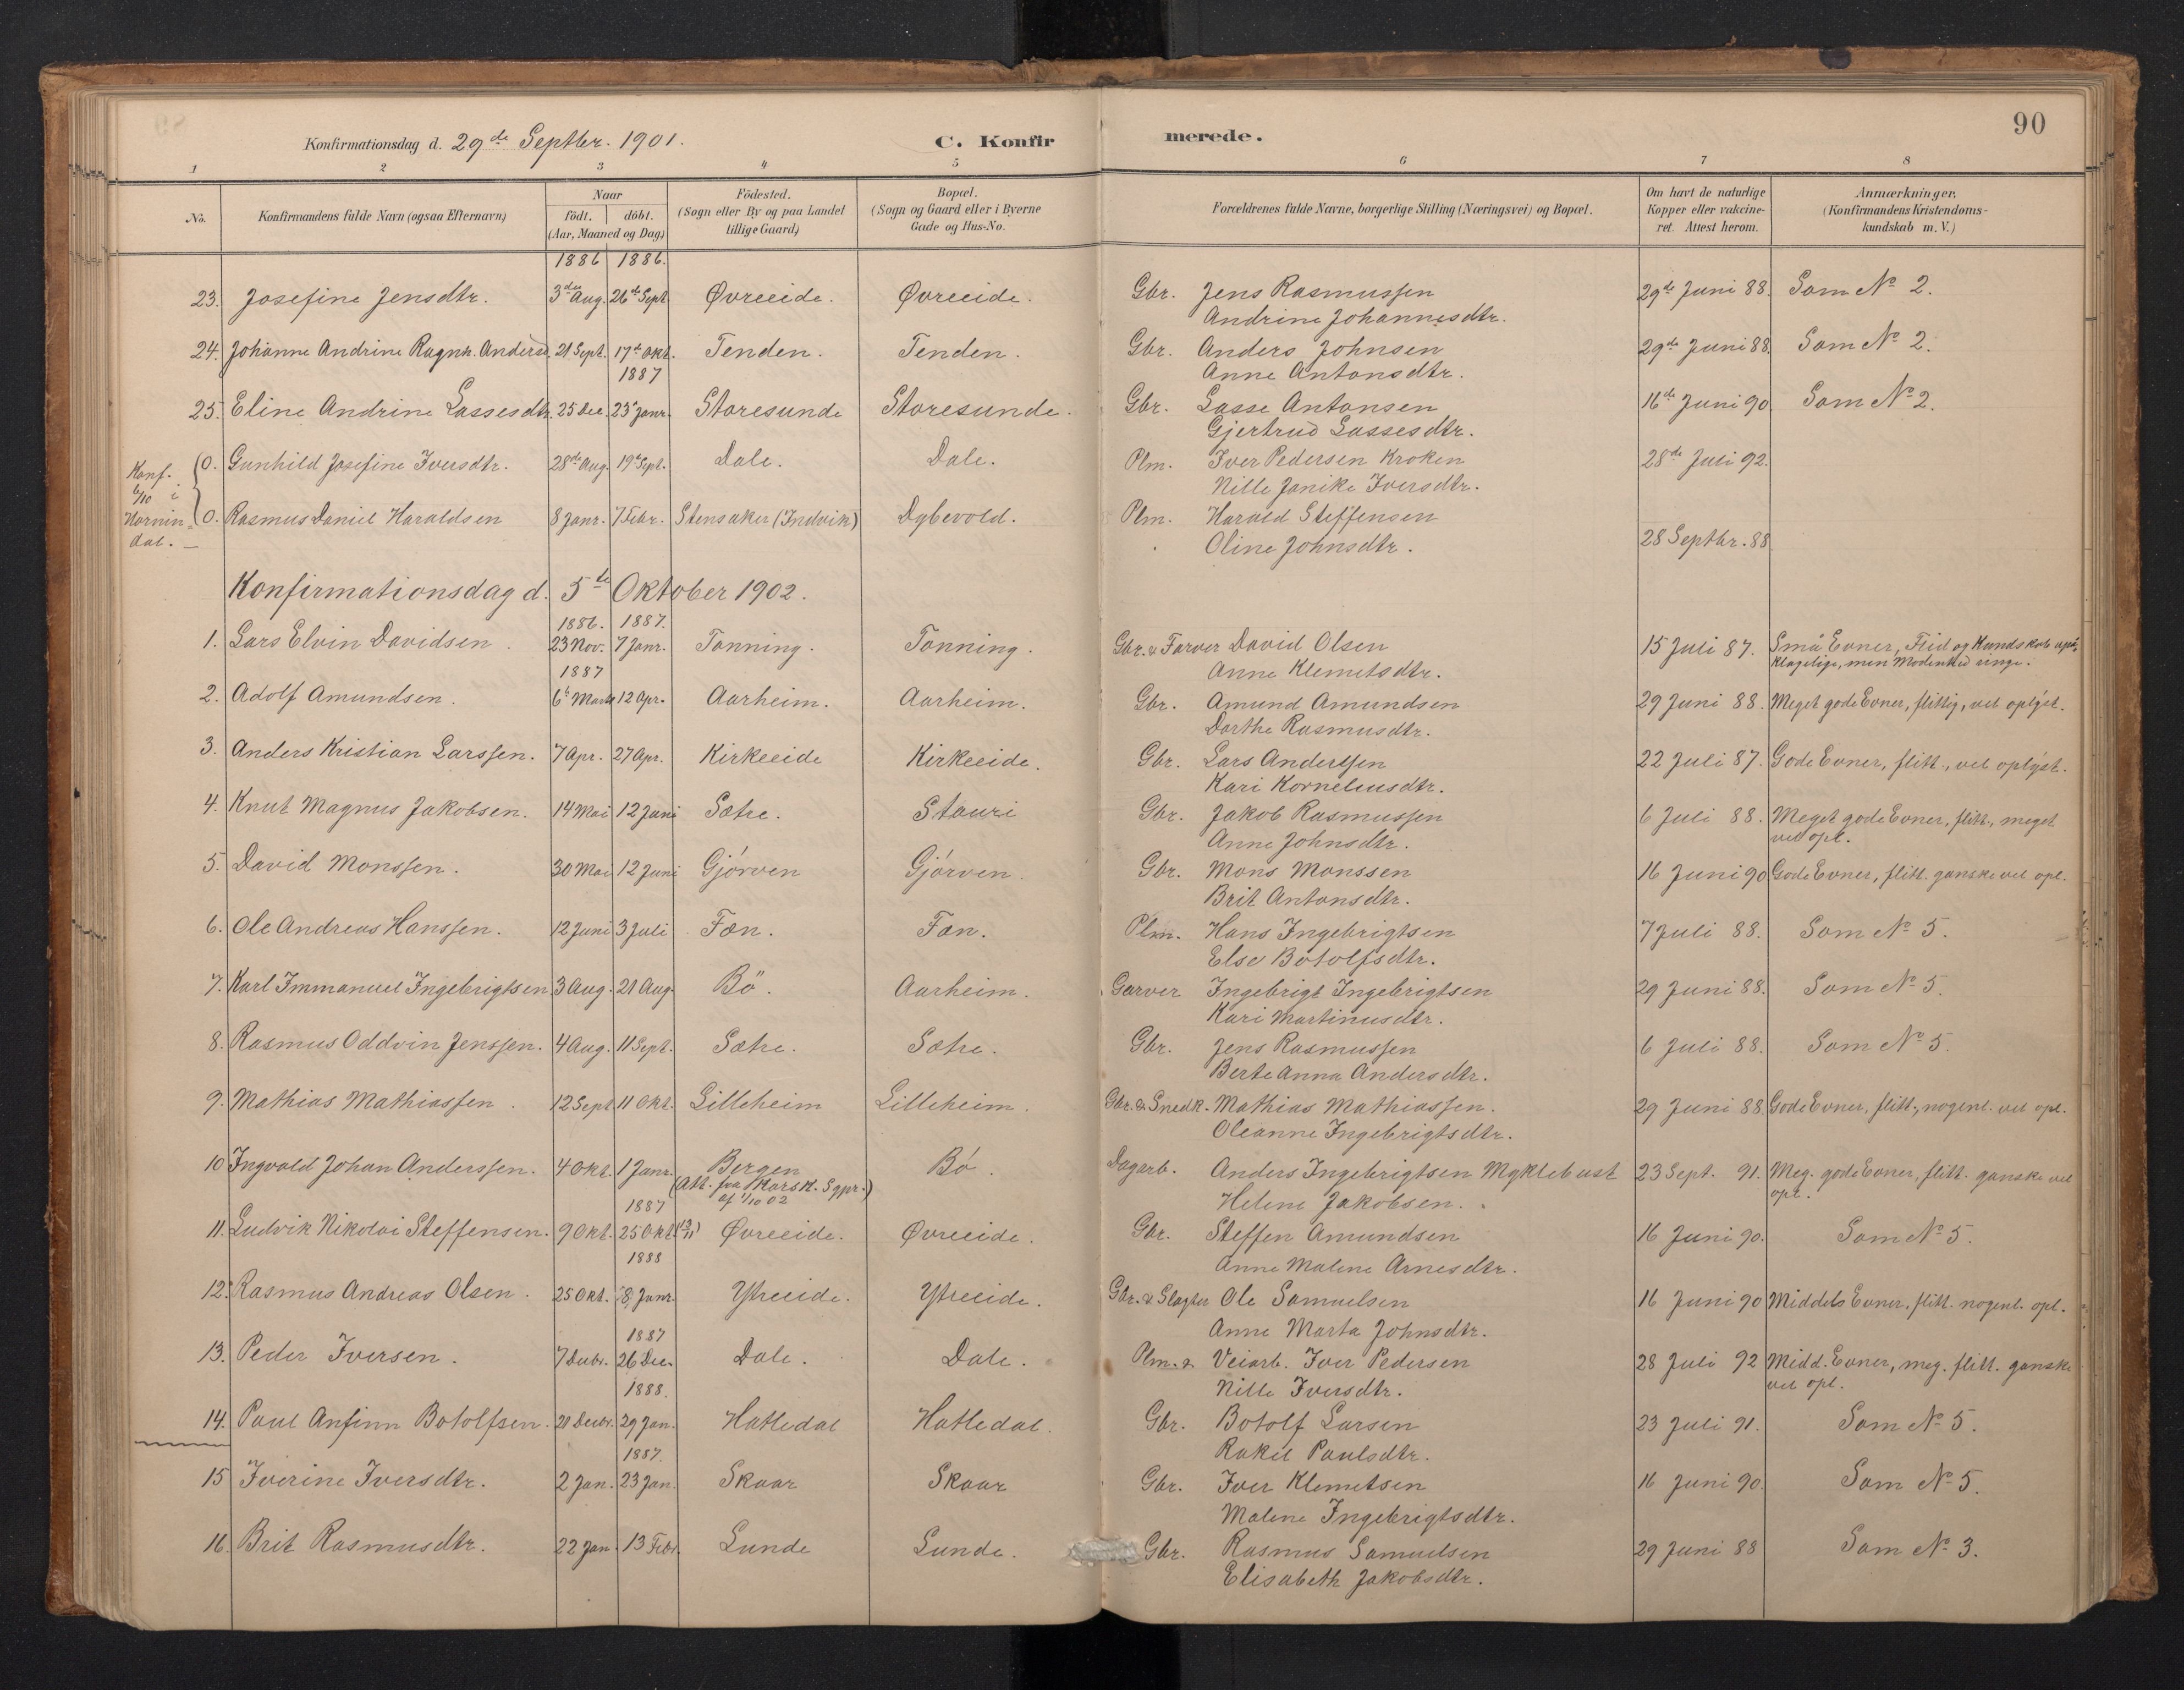 90
Konfirmationsdag d. 29de Septbr. 1901. C. Konfirmerede.
1 2 3 4 5 6 7 8
No. Konfirmandens fulde Navn (ogsaa Efternavn) Naar født. døbt. (Aar, Maaned og Dag) Fødested. (Sogn eller By og paa Landet tillige Gaard) Bopæl. (Sogn og Gaard eller i Byerne Gade og Hus-No. Forældrenes fulde Navne, borgerlige Stilling (Næringsvei) og Bopæl. Om havt de naturlige Kopper eller vakcineret. Attest herom. Anmærkninger, (Konfirmandens Kristendomskundskab m. V.)
1886 1886.
23. Josefine Jensdtr. 3de Aug. 26de Sept. Øvreeide. Øvreeide. Gbr. Jens Rasmussen 29de Juni 88. Som No 2.
Andrine Johannesdtr.
24. Johanne Andrine Ragnh. Andersd. 21 Sept. 17de Okt. Tenden. Tenden. Gbr. Anders Johnsen 29de Juni 88. Som No 2.
Anne Antonsdtr.
1887
25. Eline Andrine Lassesdtr. 25 Dec. 23 Janr. Storesunde Storesunde. Gbr. Lasse Antonsen 16de Juni 90. Som No 2.
Gjertrud Lassesdtr.
Konf. 6/10 i Hornindal.
0. Gunhild Josefine Iversdtr. 28de Aug. 19de Sept. Dale. Dale. Plm. Iver Pedersen Kroken 28de Juli 92.
Nille Janike Iversdtr.
0. Rasmus Daniel Haraldsen 8 Janr. 7 Febr. Stensaker (Indvik) Dybevold. Plm. Harald Steffensen
Oline Johnsdtr. 28 Septbr. 88
Konfirmationsdag d. 5te Oktober 1902.
1886. 1887.
1. Lars Elvin Davidsen. 23 Nov. 7 Janr. Tonning. Tonning. Gbr. & Farver David Olsen 15 Juli 87. Små Evner, Flid og Kundskab
Anne Klemetsdtr. klagelige, men Modenhed ringe.
1887
2. Adolf Amundsen. 6te Marts 12 Apr. Aarheim. Aarheim. Gbr. Amund Amundsen 29 Juni 88. Meget gode Evner, flittig, vel oplyst.
Dorthe Rasmusdtr.
3. Anders Kristian Larssen. 7 Apr. 27 Apr. Kirkeeide Kirkeeide. Gbr. Lars Anderssen 22 Juli 87. Gode Evner, flitt., vel oplyst.
Kari Korneliusdtr.
4. Knut Magnus Jakobsen. 14 Mai 12 Juni Sætre. Stauri Gbr. Jakob Rasmussen 6 Juli 88. Meget gode Evner, flitt., meget
Anne Johnsdtr. vel opl.
5. David Monssen. 30 Mai 12 Juni Gjørven Gjørven. Gbr. Mons Monssen 16 Juni 90 Gode Evner, flitt. ganske vel opl.
Brit Antonsdtr.
6. Ole Andreas Hanssen. 12 Juni 3 Juli Fæn. Fæn. Plm. Hans Ingebrigtsen 7 Juli 88. Som No 5.
Else Botolfsdtr.
7. Karl Immanuel Ingebrigtsen 3 Aug. 21 Aug. Bö. Aarheim. Garver Ingebrigt Ingebrigtsen 29 Juni 88. Som No 5.
Kari Martinusdtr.
8. Rasmus Oddvin Jenssen. 4 Aug. 11 Sept. Sætre. Sætre. Gbr. Jens Rasmussen 6 Juli 88. Som No 5.
Berte Anna Andersdtr.
9. Mathias Mathiassen. 12 Sept 11 Okt. Lilleheim Lilleheim. Gbr. & Snedk. Mathias Mathiassen. 29 Juni 88. Gode Evner, flitt., nogenl. vel opl.
Oleanne Ingebrigtsdtr.
10 Ingvald Johan Anderssen. 4 Okt. 1 Janr. Bergen Bö. Dagarb. Anders Ingebrigtsen Myklebust 23 Sept. 91. Meg. gode Evner, flitt. ganske vel
(Att. fra Korsk. Sgpr. af 1/10 02) Helene Jakobsen. opl.
1887
11. Ludvik Nikolai Steffensen. 9 Okt. 25 Okt. (13/11) Øvreeide. Øvreeide. Gbr. Steffen Amundsen 16 Juni 90. Som No 5.
Anne Malene Arnesdtr.
1888
12. Rasmus Andreas Olsen. 25 Okt. 8 Janr. Ytreeide. Ytreeide. Gbr. & Slagter Ole Samuelsen 16 Juni 90 Middels Evner, flitt. nogenl. opl.
Anne Marta Johnsdtr.
1887
13. Peder Iversen. 7 Decbr. 26 Dec. Dale. Dale. Plm. & Veiarb. Iver Pedersen 28 Juli 92 Midd. Evner, meg. flitt. ganske
Nille Iversdtr. vel opl.
1888.
14. Paul Anfinn Botolfsen. 21 Decbr. 29 Jan. Hatledal Hatledal. Gbr. Botolf Larsen 23 Juli 91. Som No 5.
Rakel Paulsdtr.
1887.
15 Iverine Iversdtr. 2 Jan. 23 Jan. Skaar Skaar Gbr. Iver Klemetsen 16 Juni 90. Som No 5.
Malene Ingebrigtsdtr.
16. Brit Rasmusdtr. 22 Jan. 13 Febr. Lunde Lunde. Gbr. Rasmus Samuelsen 29 Juni 88 Som No 3.
Elisabeth Jakobsdtr.